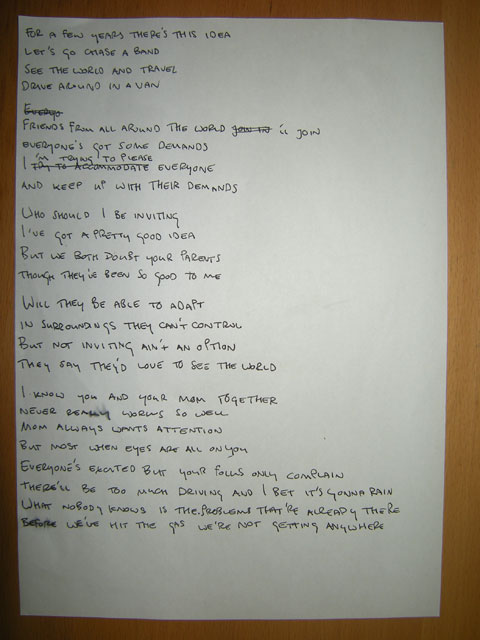 FOR A FEW YEARS THERE'S THIS IDEA
LET'S GO CHASE A BAND
SEE THE WORLD AND TRAVEL
DRIVE AROUND IN A VAN
FRIENDS FROM ALL AROUND THE WORLD JOIN IN 'LL JOIN
EVERYONE'S GOT SOME DEMANDS
'M TRYING TO PLEASE
I TRY TO ACCOMMODATE EVERYONE
AND KEEP UP WITH THEIR DEMANDS
WHO SHOULD I BE INVITING
I'VE GOT A PRETTY GOOD IDEA
BUT WE BOTH DOUBT YOUR PARENTS
THOUGH THEY'VE BEEN SO GOOD TO ME
WILL THEY BE ABLE TO ADAPT
IN SURROUNDINGS THEY CAN'T CONTROL
BUT NOT INVITING AIN'T AN OPTION
THEY SAY THEY'D LOVE TO SEE THE WORLD
I KNOW YOU AND YOUR MOM TOGETHER
NEVER REALLY WORKS SO WELL
MOM ALWAYS WANTS ATTENTION
BUT MOST WHEN EYES ARE ALL ON YOU
EVERYONE'S EXCITED BUT YOUR FOLKS ONLY COMPLAIN
THERE'LL BE TOO MUCH DRIVING AND I BET IT'S GONNA RAIN
WHAT NOBODY KNOWS IS THE PROBLEMS THAT'RE ALREADY THERE
BEFORE WE'VE HIT THE GAS WE'RE NOT GETTING ANYWHERE